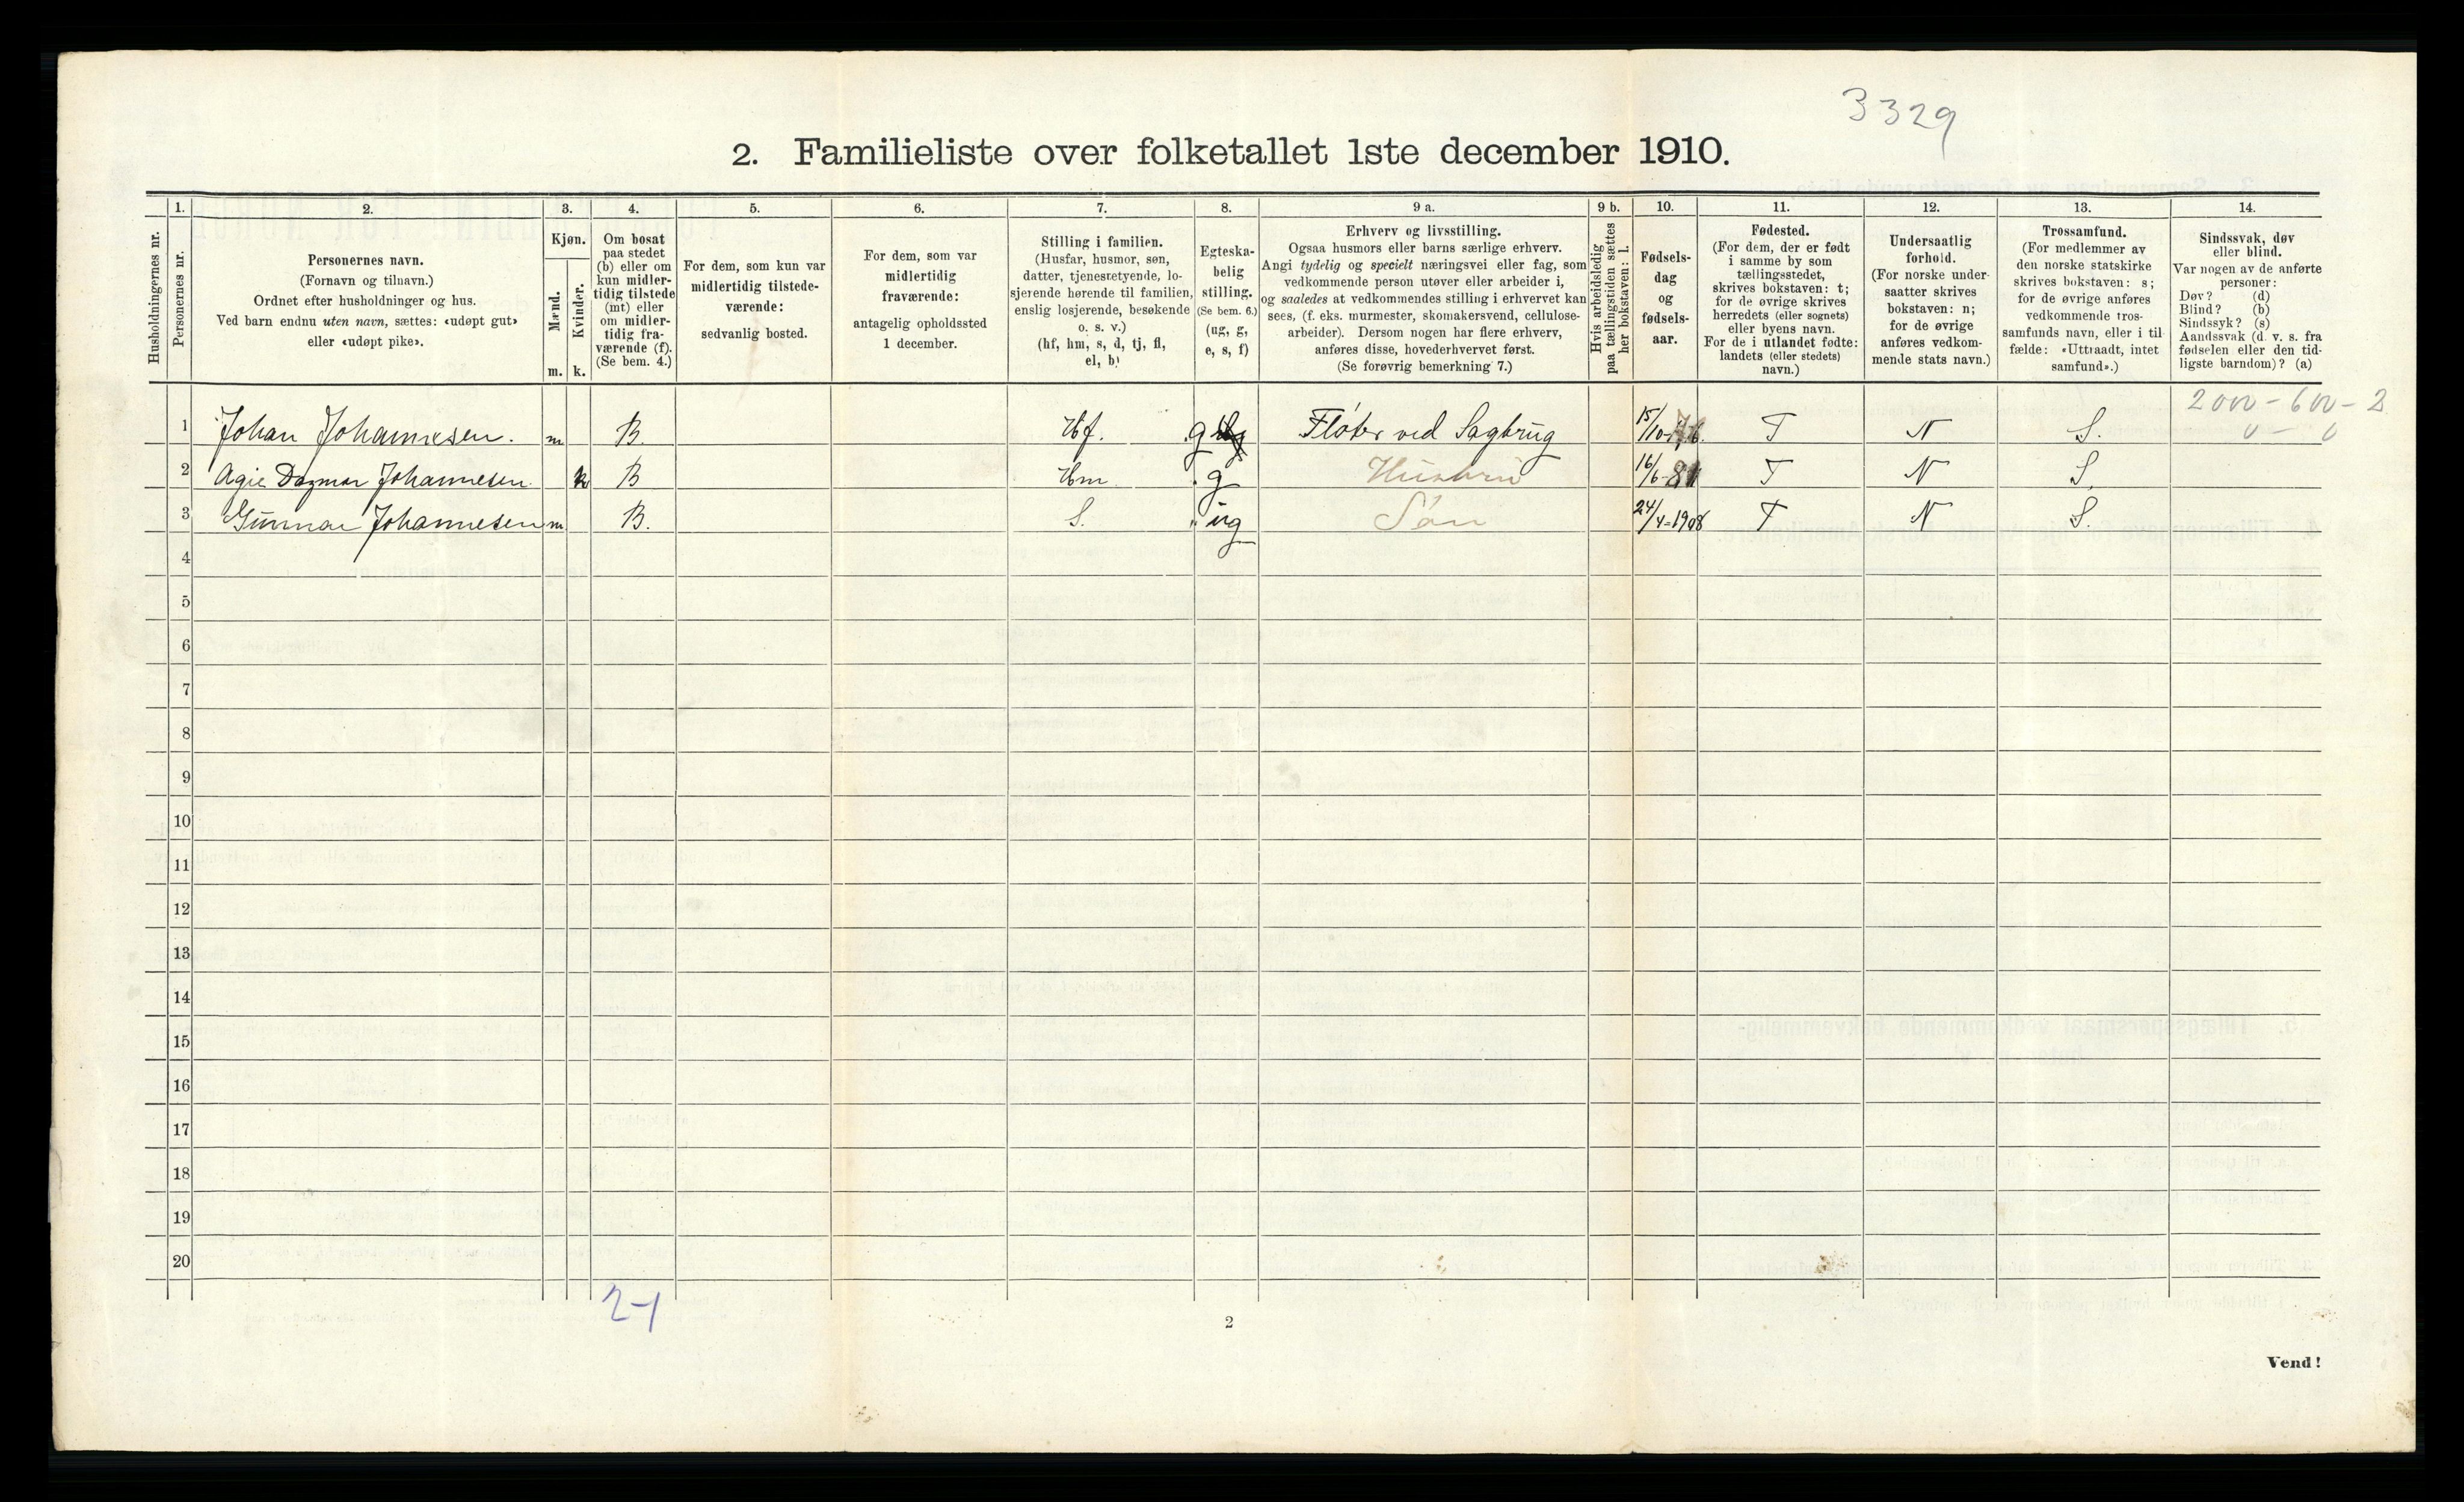 3329
2. Familieliste over folketallet 1ste december 1910.
Husholdningernes nr.
1. Personernes nr.
2. Personernes navn. (Fornavn og tilnavn.) Ordnet efter husholdninger og hus. Ved barn endnu uten navn, sættes: «udøpt gut» eller «udøpt pike».
3. Kjøn. Mænd. m. Kvinder. k.
4. Om bosat paa stedet (b) eller om kun midlertidig tilstede (mt) eller om midlertidig fraværende (f). (Se bem. 4.)
5. For dem, som kun var midlertidig tilstedeværende: sedvanlig bosted.
6. For dem, som var midlertidig fraværende: antagelig opholdssted 1 december.
7. Stilling i familien. (Husfar, husmor, søn, datter, tjenestetyende, losjerende hørende til familien, enslig losjerende, besøkende o. s. v.) (hf, hm, s, d, tj, fl, el, b)
8. Egteskabelig stilling. (Se bem. 6.) (ug, g, e, s, f)
9 a. Erhverv og livsstilling. Ogsaa husmors eller barns særlige erhverv. Angi tydelig og specielt næringsvei eller fag, som vedkommende person utøver eller arbeider i, og saaledes at vedkommendes stilling i erhvervet kan sees, (f. eks. murmester, skomakersvend, cellulosearbeider). Dersom nogen har flere erhverv, anføres disse, hovederhvervet først. (Se forøvrig bemerkning 7.)
9 b. Hvis arbeidsledig paa tællingstiden sættes her bokstaven: l.
10. Fødselsdag og fødselsaar.
11. Fødested. (For dem, der er født i samme by som tællingsstedet, skrives bokstaven: t; for de øvrige skrives herredets (eller sognets) eller byens navn. For de i utlandet fødte: landets (eller stedets) navn.)
12. Undersaatlig forhold. (For norske undersaatter skrives bokstaven: n; for de øvrige anføres vedkommende stats navn.)
13. Trossamfund. (For medlemmer av den norske statskirke skrives bokstaven: s; for de øvrige anføres vedkommende trossamfunds navn, eller i tilfælde: «Uttraadt, intet samfund».)
14. Sindssvak, døv eller blind. Var nogen av de anførte personer: Døv? (d) Blind? (b) Sindssyk? (s) Aandssvak (d. v. s. fra fødselen eller den tidligste barndom)? (a)
2000 - 600 - 2
0 - 0
1 Johan Johannesen. m B Hf. g Fløter ved Sagbrug 15/10-76. T N S.
2 Agie Dagmar Johannesen. k B Hm. g Hustru 16/6-81 T N S.
3 Gunnar Johannesen m B. S. ug Søn 24/4-1908 T N S.
4
5
6
7
8
9
10
11
12
13
14
15
16
17
18
19
20
2-1
2
Vend!